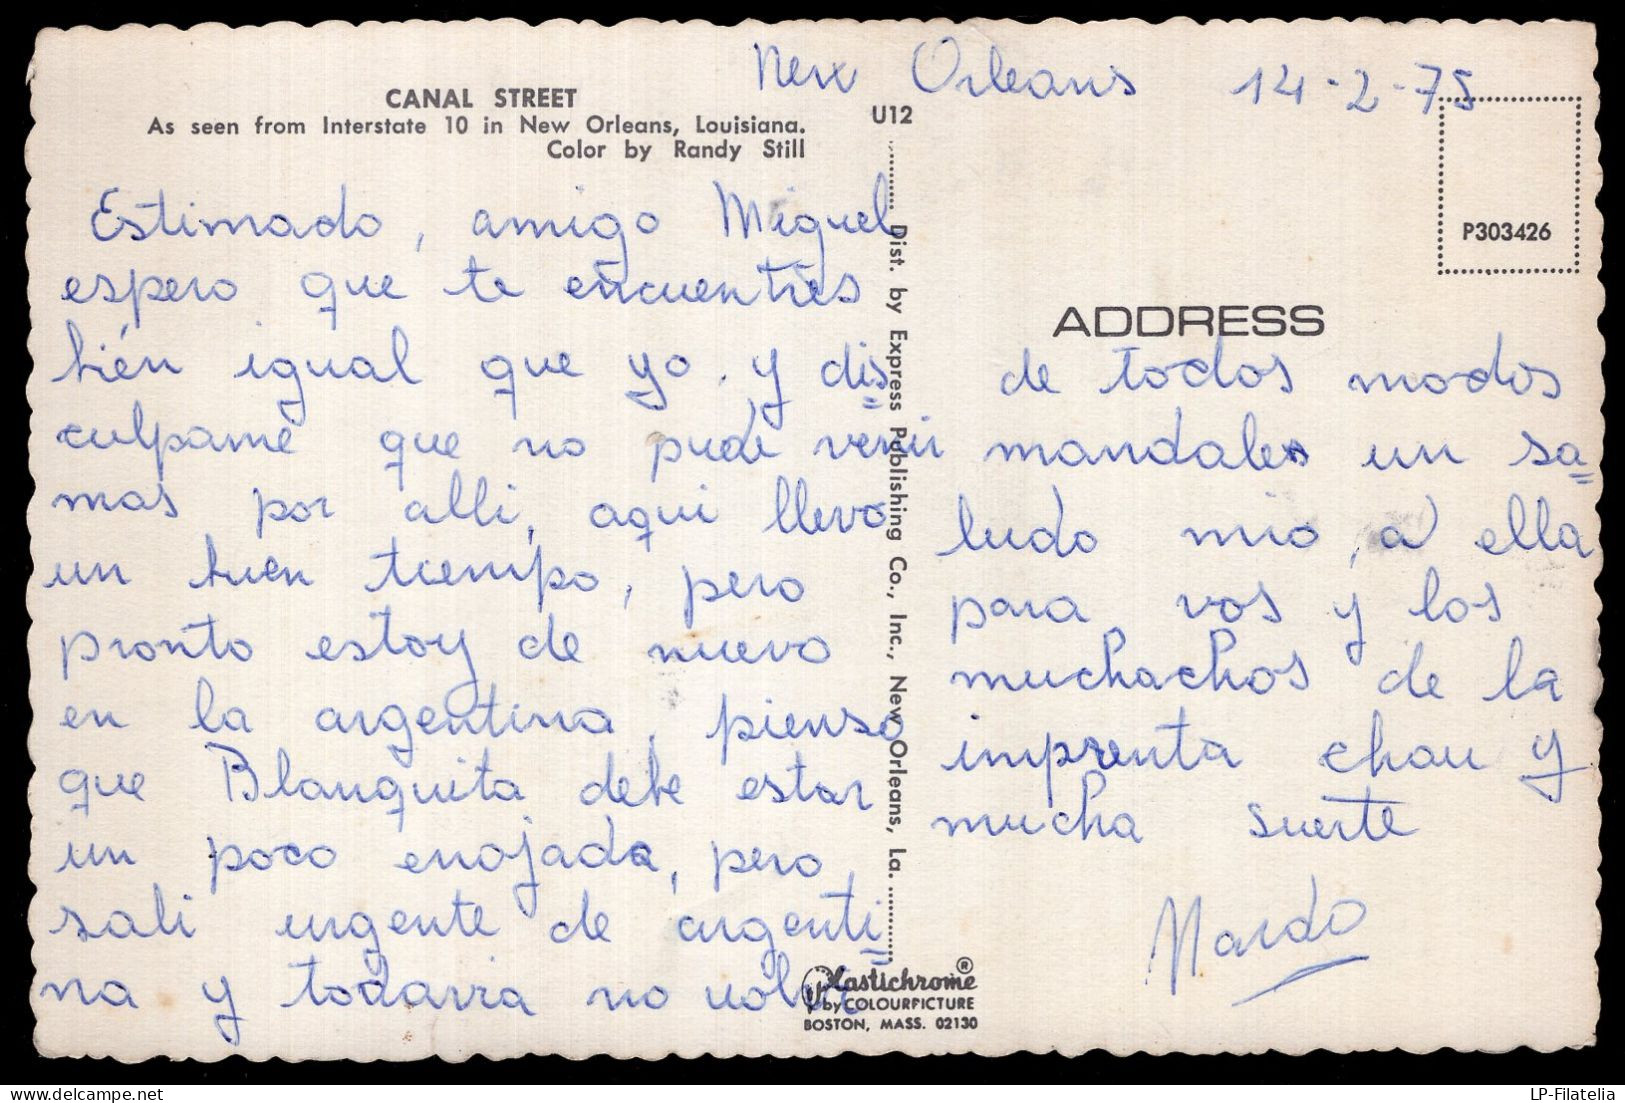 New Orleans 14-2-75
CANAL STREET
As seen from Interstate 10 in New Orleans, Louisiana.
Color by Randy Still
U12
P303426
Estimado, amigo Miguel
espero que te encuentres
bién igual que yo. y dis=
culpame que no pude venir
mas por alli, aqui llevo
un buen tiempo, pero
pronto estoy de nuevo
en la argentina, pienso
que Blanquita debe estar
un poco enojada, pero
sali urgente de argenti=
na y todavia no volvi
Dist. by Express Publishing Co., Inc., New Orleans, La.
ADDRESS
de todos modos
mandales un sa=
ludo mio, a ella
para vos y los
muchachos de la
imprenta chau y
mucha suerte
Nardo
Plastichrome®
by COLOURPICTURE
BOSTON, MASS. 02130
LP-Filatelia